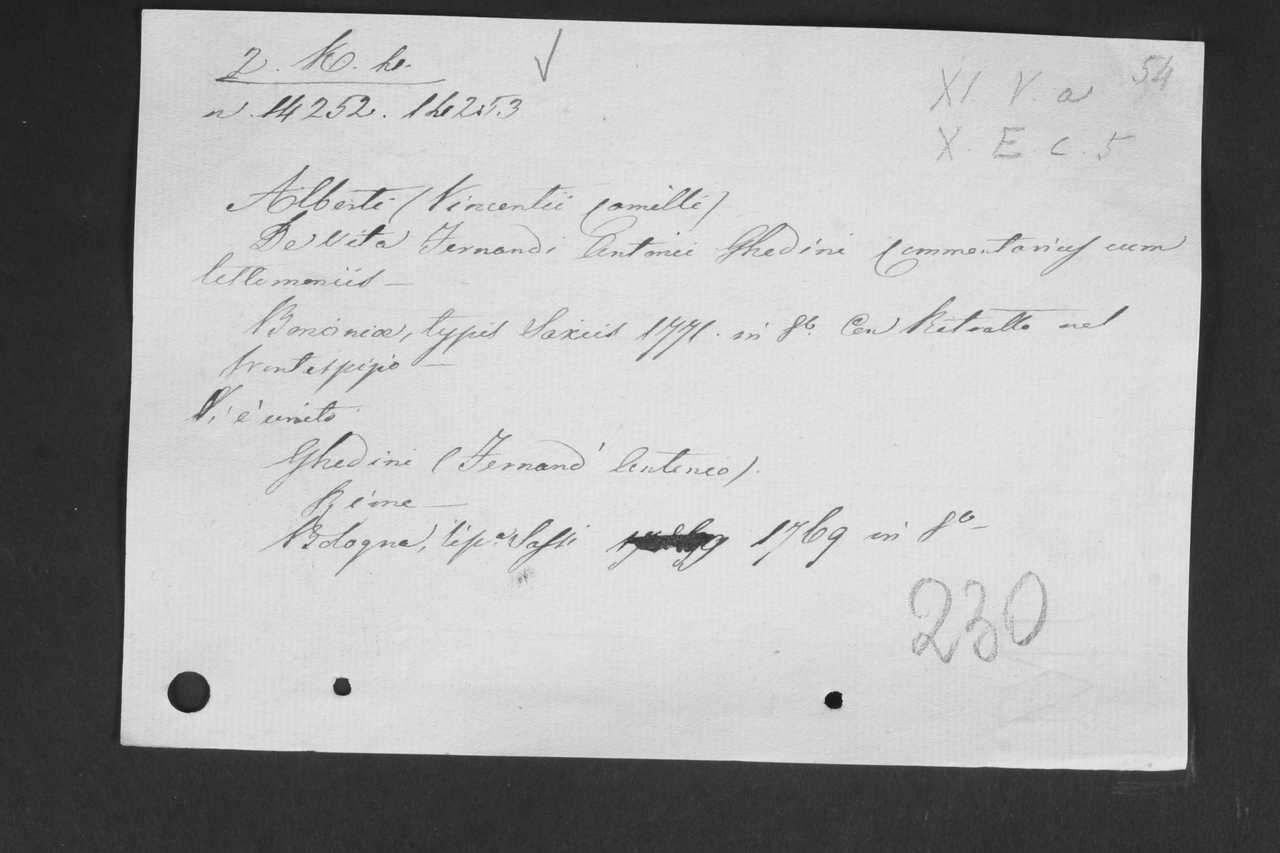 2. K. h.
n. 14252. 14253
54
XI. V. a
X. E. c. 5
Alberti (Vincentii Camilli)
De Vita Fernandi Antonii Ghedini Commentarius cum
testimoniis —
Bononiae, typis Saxiis 1771. in 8º. Con Ritratto nel
frontespizio —
Vi è unito
Ghedini (Fernand' Antonio).
Rime —
Bologna, tip.a Sassi 1769 in 8º
230